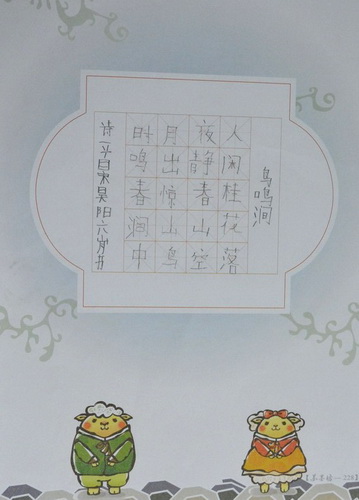 鸟鸣涧
人闲桂花落
夜静春山空
月出惊山鸟
时鸣春涧中
昊阳六岁书